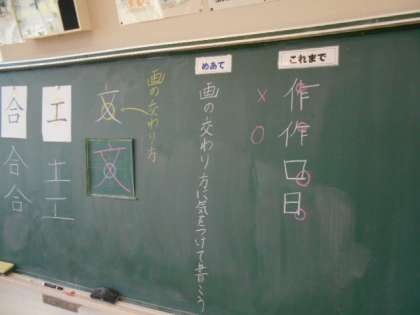 これまで
×作
○作
口
日
めあて
画の交わり方に気をつけて書こう
画の交わり方
文
文
工
土
工
合
合
合